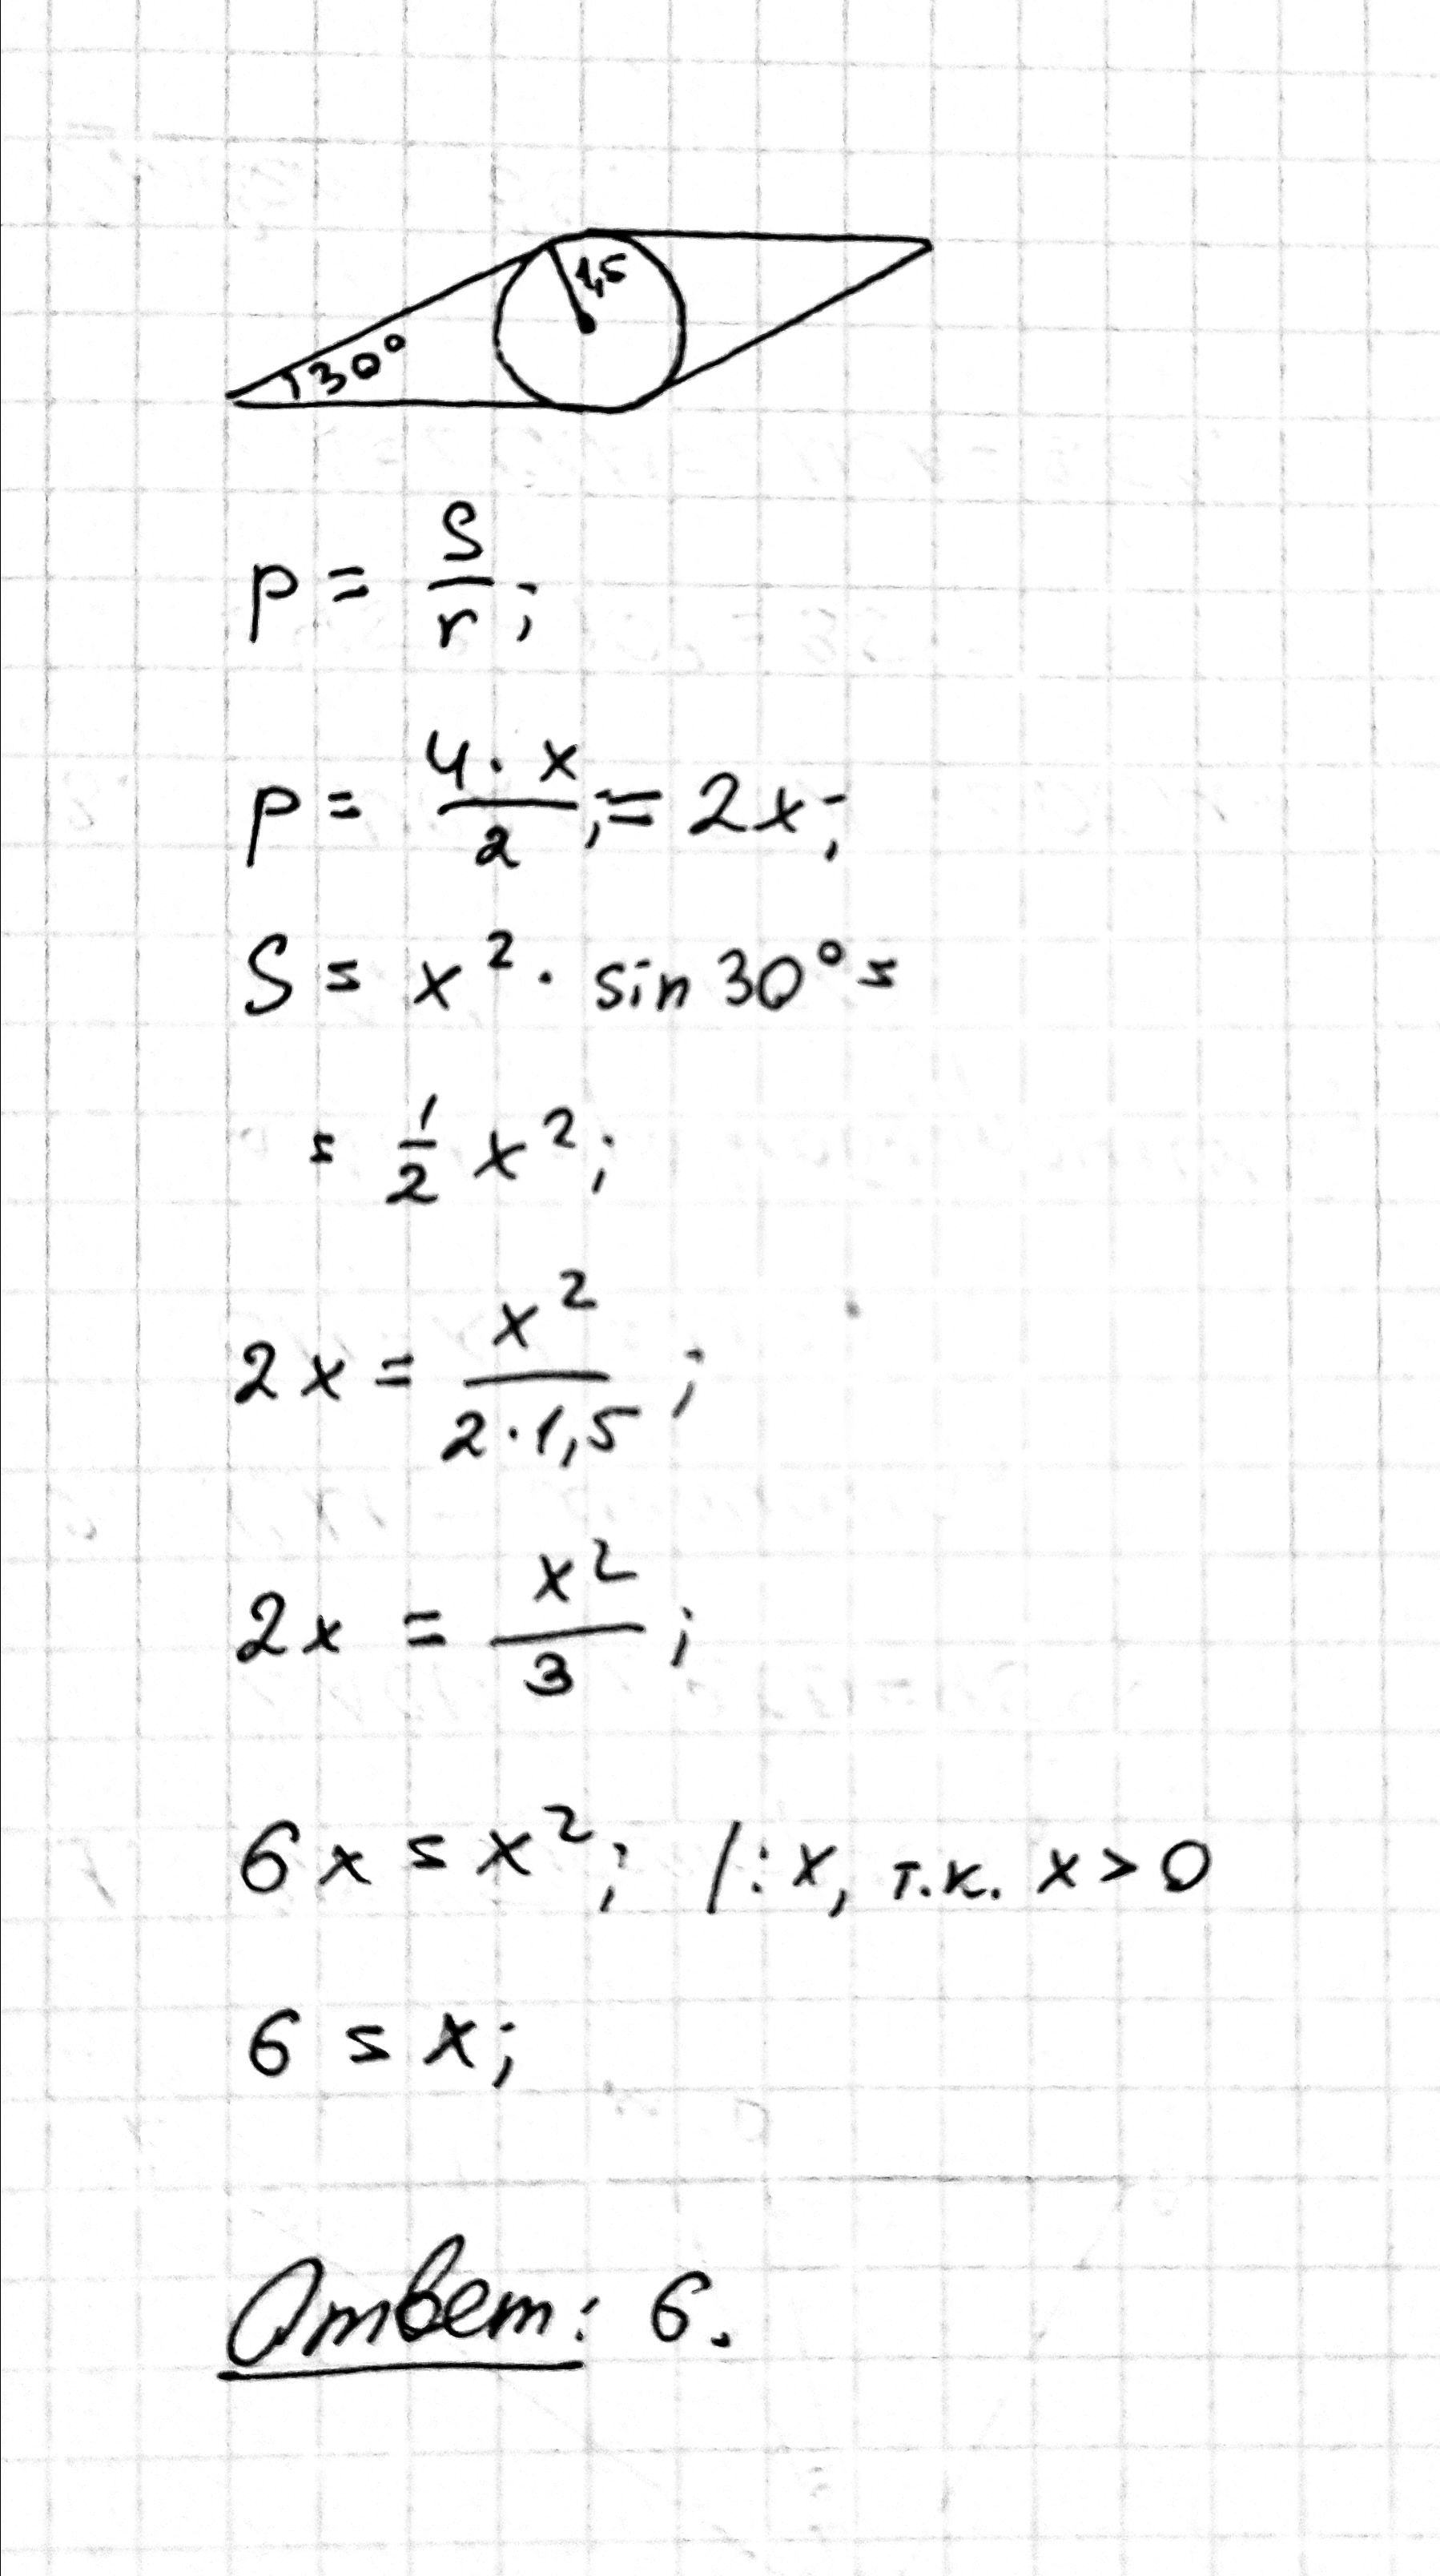 1,5
30°
p = S/r;
p = 4·x/2; = 2x;
S = x²· sin 30° =
= 1/2 x²;
2x = x²/2·1,5;
2x = x²/3;
6x = x²; |:x, т.к. x > 0
6 = x;
Ответ: 6.